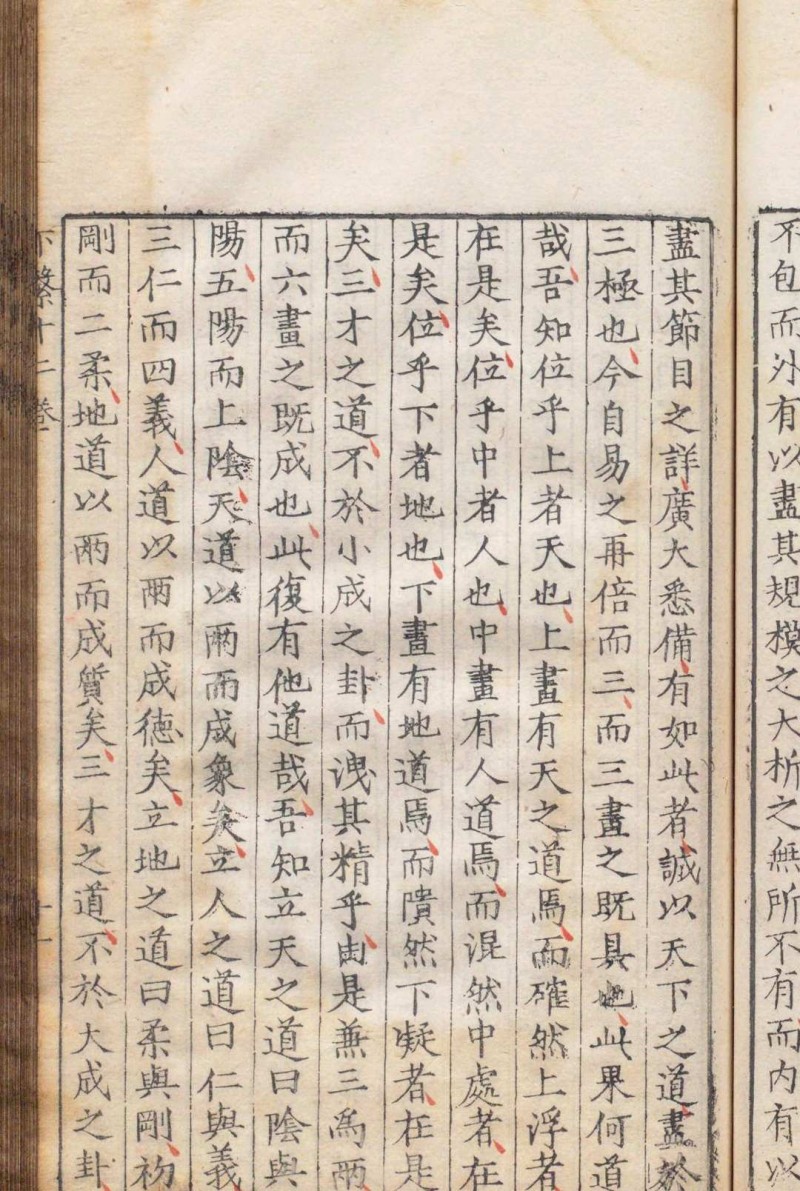 不包而外有以盡其規模之大析之無所不有而内有以
盡其節目之詳廣大悉備有如此者誠以天下之道盡於
三極也今自易之再倍而三而三畫之既具也此果何道
哉吾知位乎上者天也上畫有天之道焉而確然上浮者
在是矣位乎中者人也中畫有人道焉而混然中處者在
是矣位乎下者地也下畫有地道焉而隤然下凝者在是
矣三才之道不於小成之卦而洩其精乎由是兼三爲兩
而六畫之既成也此復有他道哉吾知立天之道曰陰與
陽五陽而上陰天道以兩而成象矣立人之道曰仁與義
三仁而四義人道以兩而成德矣立地之道曰柔與剛初
剛而二柔地道以兩而成質矣三才之道不於大成之卦
下繫十二卷
十一